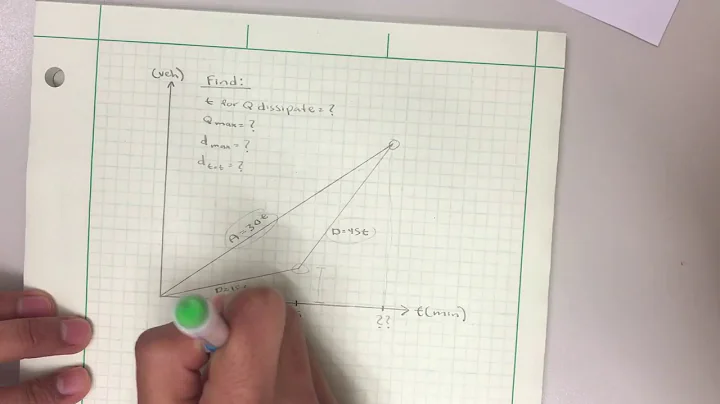 (veh)
Find:
t for Q dissipate = ?
Qmax = ?
dmax = ?
dtot = ?
A=30t
D=45t
t(min)
??